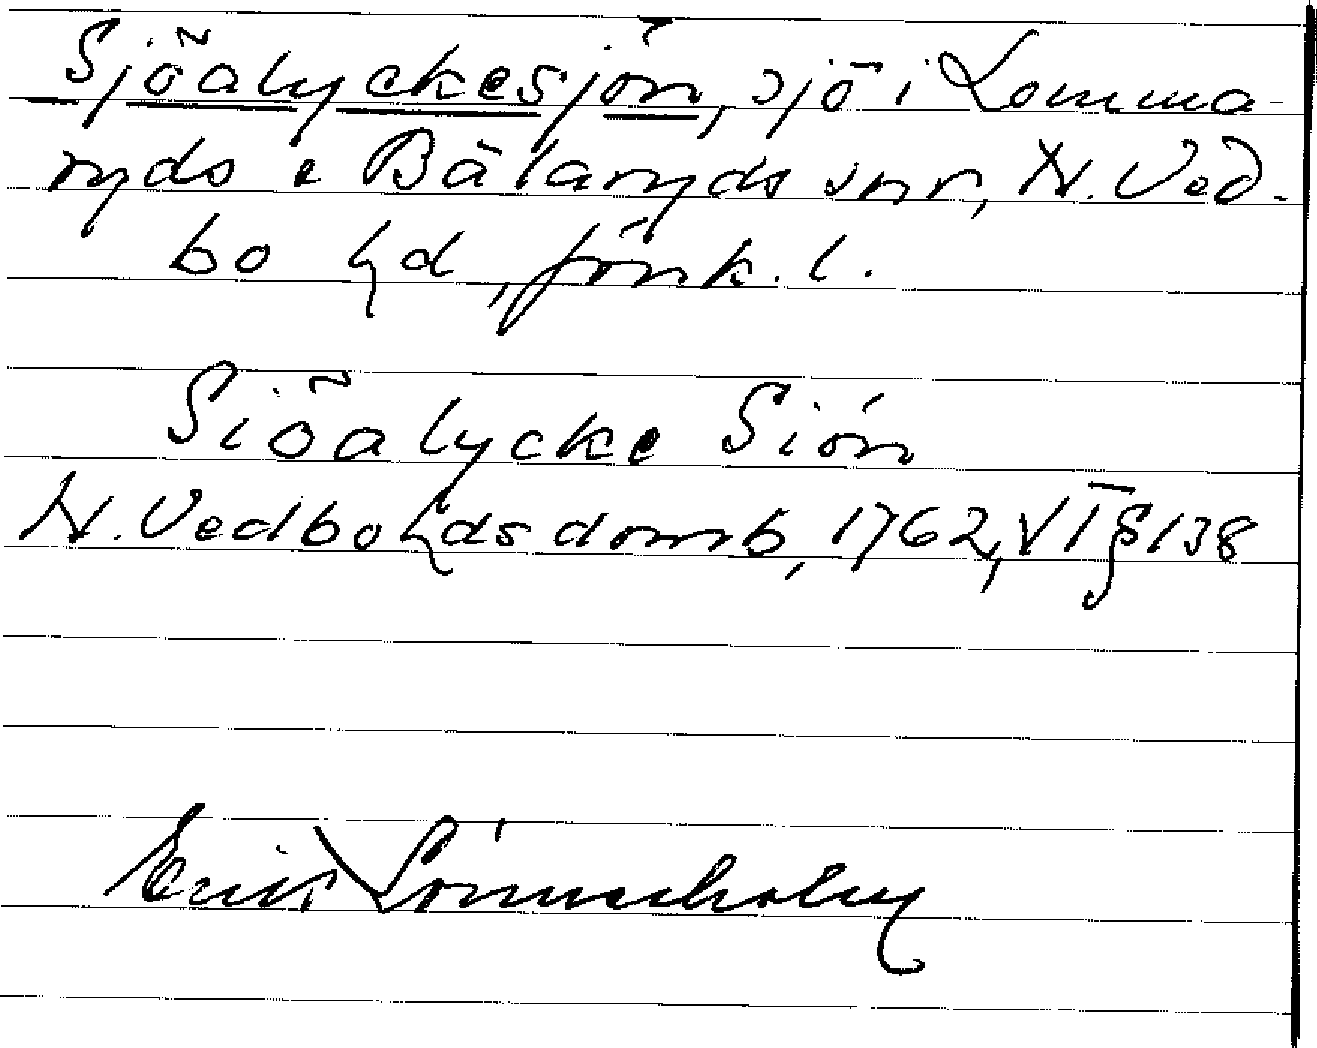 Sjöalyckesjön, sjö i Lomma-
ryds o Bälaryds snr, N. Ved-
bo hd, Jönk. l.
Siöalycke Siön
N. Vedbo hds domb, 1762, VI § 138
Erik Lönnerholm